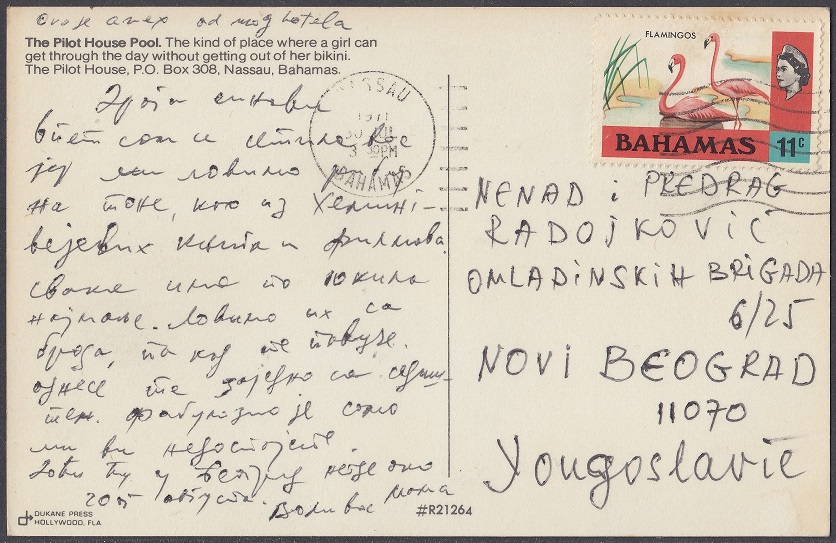 Ovo je anex od mog hotela
The Pilot House Pool. The kind of place where a girl can
get through the day without getting out of her bikini.
The Pilot House, P.O. Box 308, Nassau, Bahamas.
синови
сам и
јер ми ловимо рибу
на тоне, као из Хемин-
вејевих књига и филмова.
свака има по 10 кила
најмање. Ловимо их са
брода, па кад те повуче.
однесе те заједно са
тем. фабулозно је само
ми ви недостајете.
у Београд негде око
20 августа. Воли вас мама
DUKANE PRESS
HOLLYWOOD, FLA.
#R21264
NASSAU
1971
30
3 PM
BAHAMAS
FLAMINGOS
BAHAMAS 11c
NENAD i PREDRAG
RADOJKOVIĆ
OMLADINSKIH BRIGADA
6/25
NOVI BEOGRAD
11070
Yougoslavie